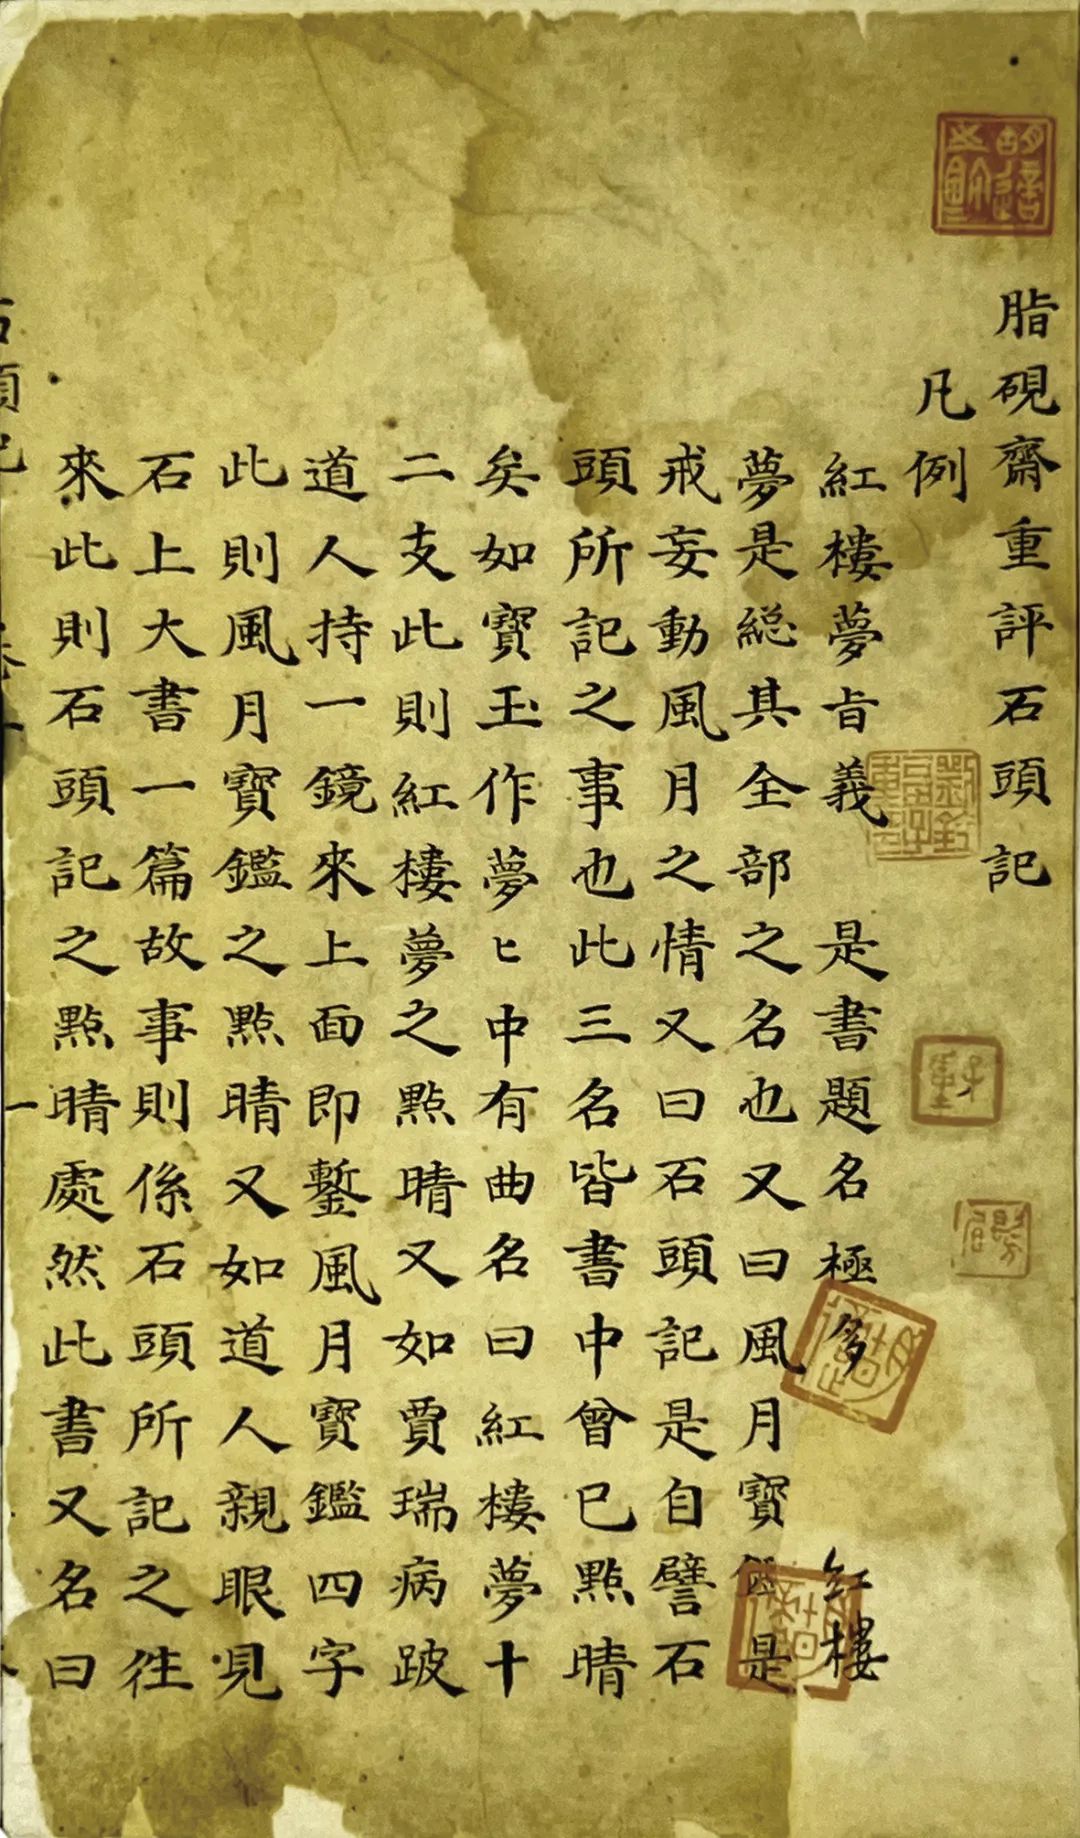 胡適之鉨
脂硯齋重評石頭記
凡例
劉銓福子重印
子重
紅樓夢旨義　是書題名極多　紅樓
夢是総其全部之名也又曰風月寶是
戒妄動風月之情又曰石頭記是自譬石
頭所記之事也此三名皆書中曾已點晴
矣如寶玉作夢ヒ中有曲名曰紅樓夢十
二支此則紅樓夢之點晴又如賈瑞病跛
道人持一鏡來上面即鏨風月寶鑑四字
此則風月寶鑑之點晴又如道人親眼見
石上大書一篇故事則係石頭所記之往
來此則石頭記之點晴處然此書又名曰
石頭記
一